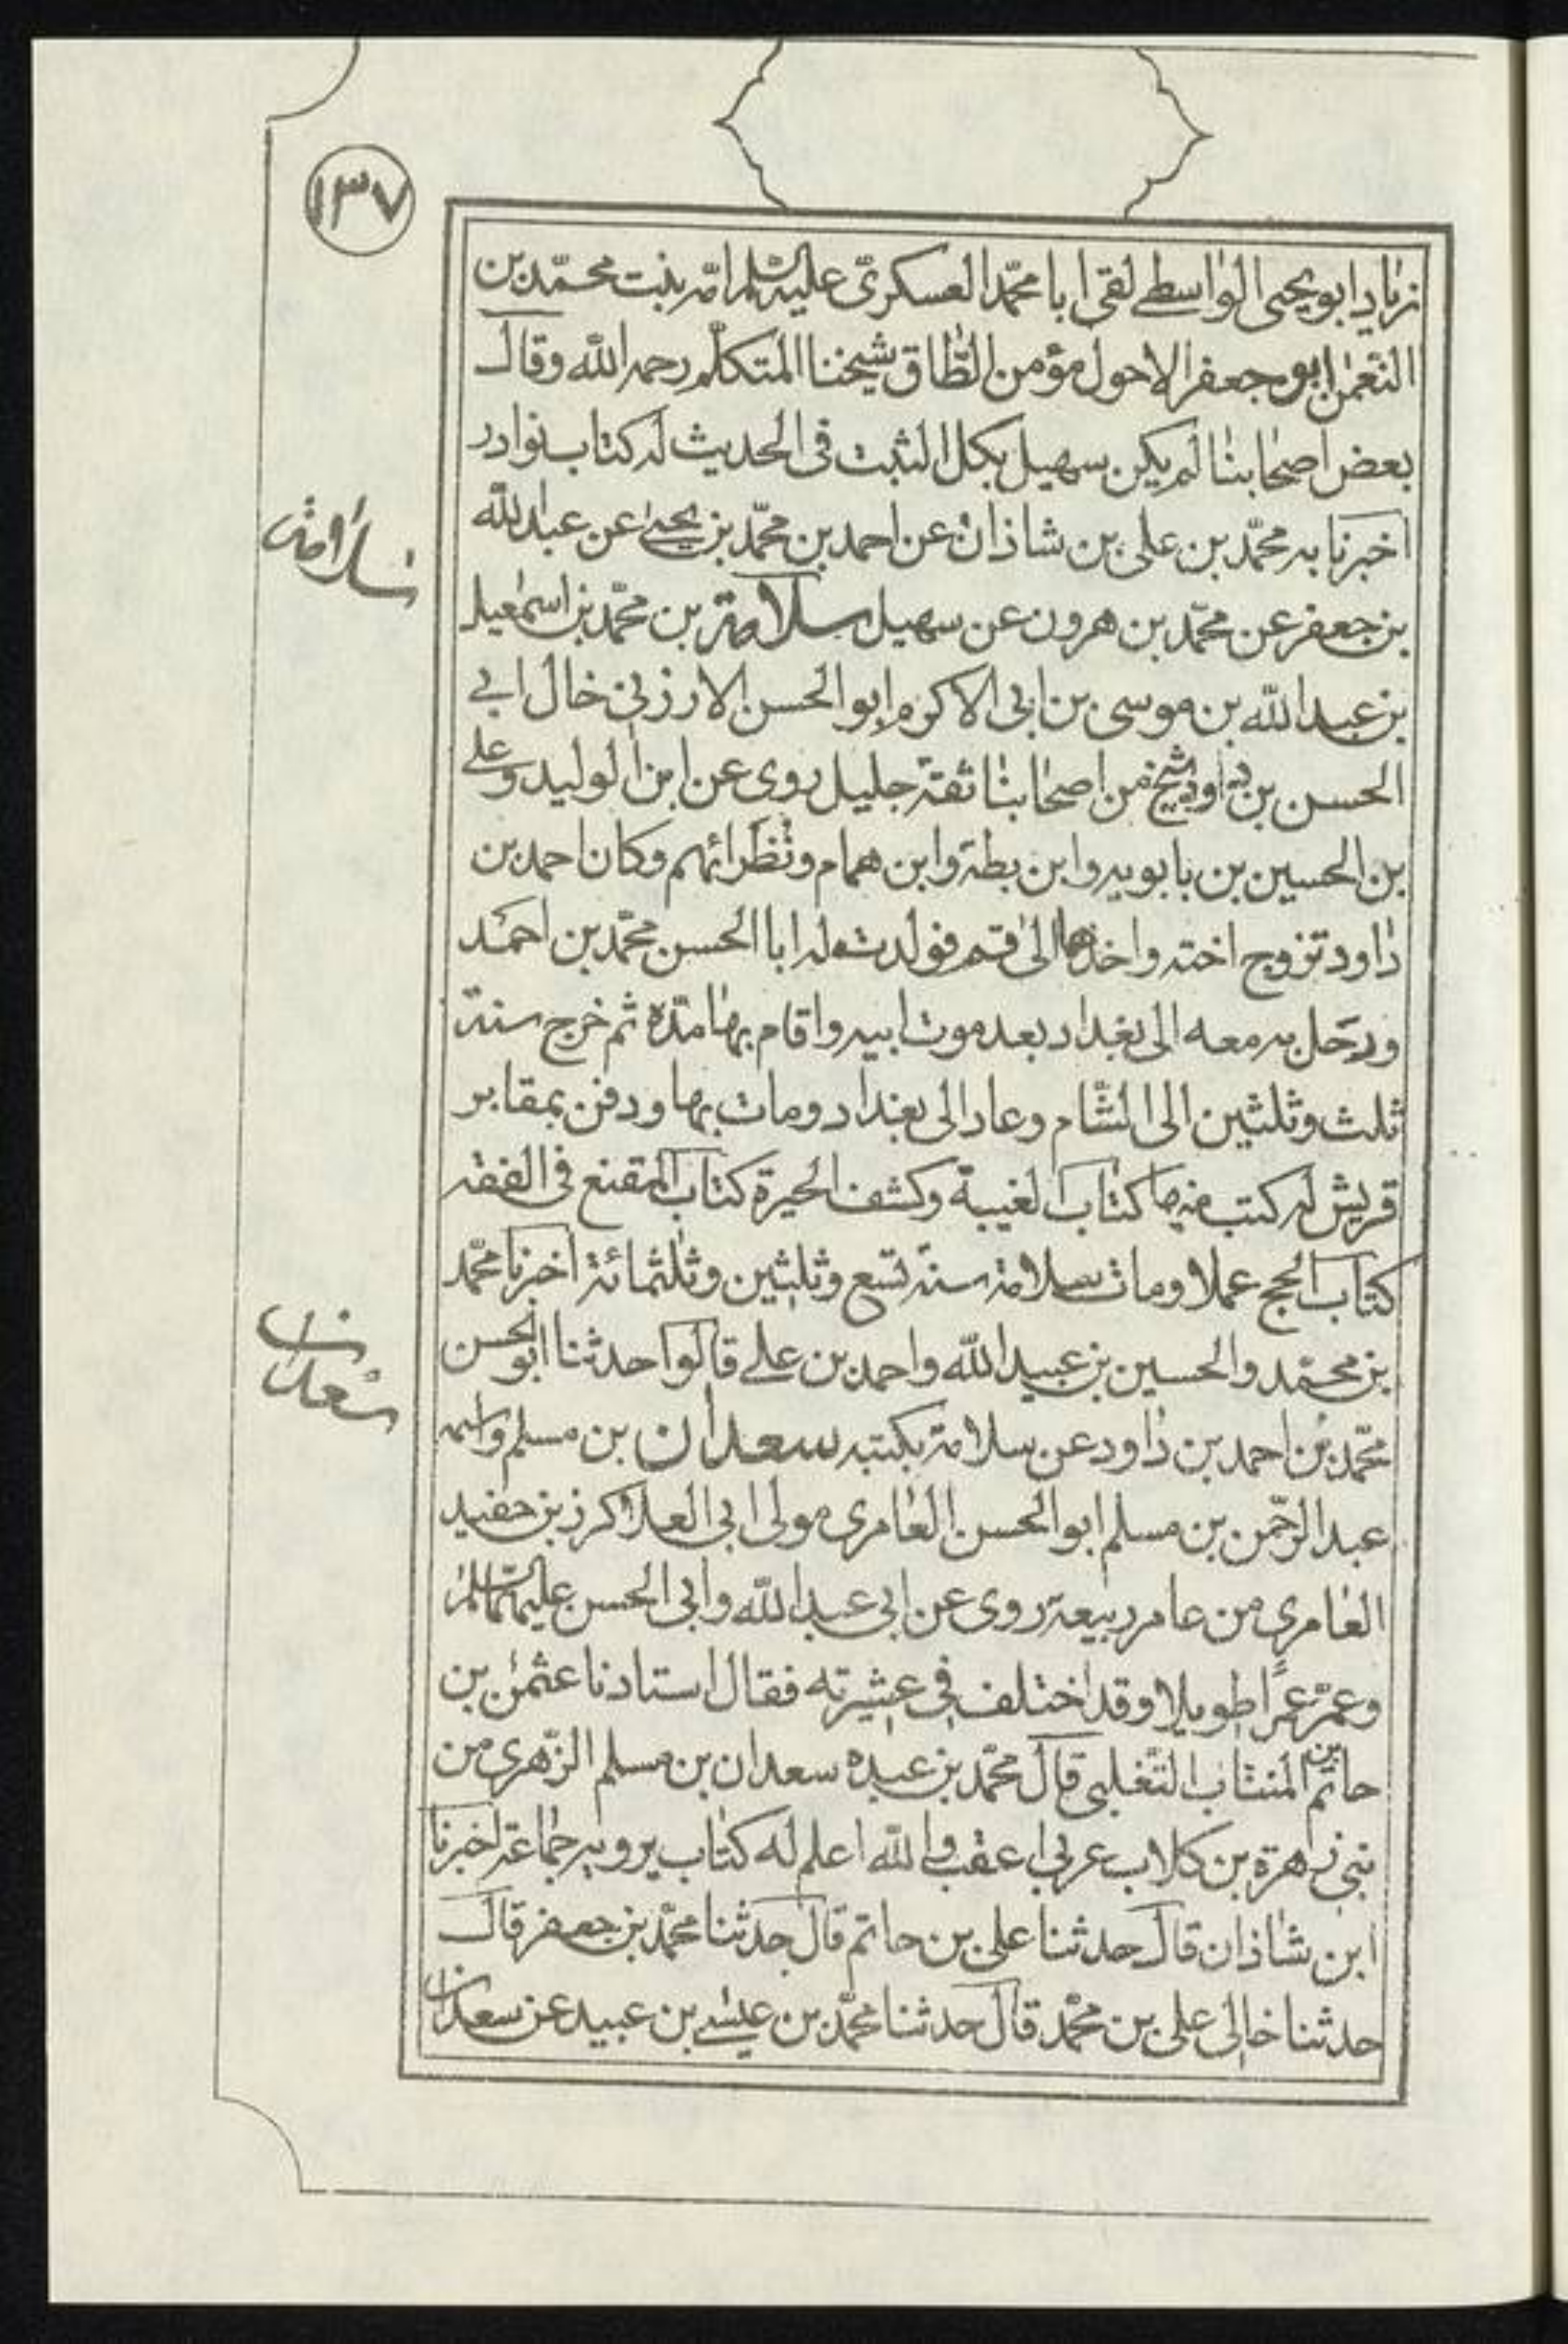 ١٣٧
زياد ابو يحيى الواسطى لقى ابا محمّد العسكرىّ عليه السّلم امّه بنت محمّد بن
النعمن ابو جعفر الاحول مؤمن الطّاق شيخنا المتكلّم رحمه الله وقال
بعض اصحابنا لم يكن سهيل بكل الثبت فى الحديث له كتاب نوادر
اخبرنا به محمّد بن على بن شاذان عن احمد بن محمّد بن يحيى عن عبد الله
بن جعفر عن محمّد بن هرون عن سهيل سلامة بن محمّد بن اسمعيل
بن عبد الله بن موسى بن ابى الاكرم ابو الحسن الارزنى خال ابى
الحسن بن داود شيخ من اصحابنا ثقة جليل روى عن ابن الوليد وعلى
بن الحسين بن بابويه وابن بطة وابن همام ونظرائهم وكان احمد بن
داود تزوج اخته واخذها الى قم فولدت له ابا الحسن محمّد بن احمد
ورحل به معه الى بغداد بعد موت ابيه واقام بها مدّة ثم خرج سنة
ثلث وثلثين الى الشّام وعاد الى بغداد ومات بها ودفن بمقابر
قريش له كتب منها كتاب الغيبة وكشف الحيرة كتاب المقنع فى الفقه
كتاب الحج عملا ومات سلامة سنة تسع وثلثين وثلثمائة اخبرنا محمّد
بن محمّد والحسين بن عبيد الله واحمد بن على قالوا حدثنا ابو الحسن
محمّد بن احمد بن داود عن سلامة بكتبه سعدان بن مسلم واسمه
عبد الرّحمن بن مسلم ابو الحسن العامرى مولى ابى العلا كرز بن حفيد
العامرى من عامر ربيعة روى عن ابى عبد الله وابى الحسن عليهما السّلم
وعمر عمرًا طويلا وقد اختلف فى عشيرته فقال استادنا عثمن بن
حاتم بن المنتاب التغلبى قال محمّد بن عبده سعدان بن مسلم الزّهرى من
بنى زهرة بن كلاب عربى اعقب والله اعلم له كتاب يرويه جماعة اخبرنا
ابن شاذان قال حدثنا على بن حاتم قال حدثنا محمّد بن جعفر قال
حدثنا خالى على بن محمّد قال حدثنا محمّد بن عيسى بن عبيد عن سعدان
سلامة
سعدان